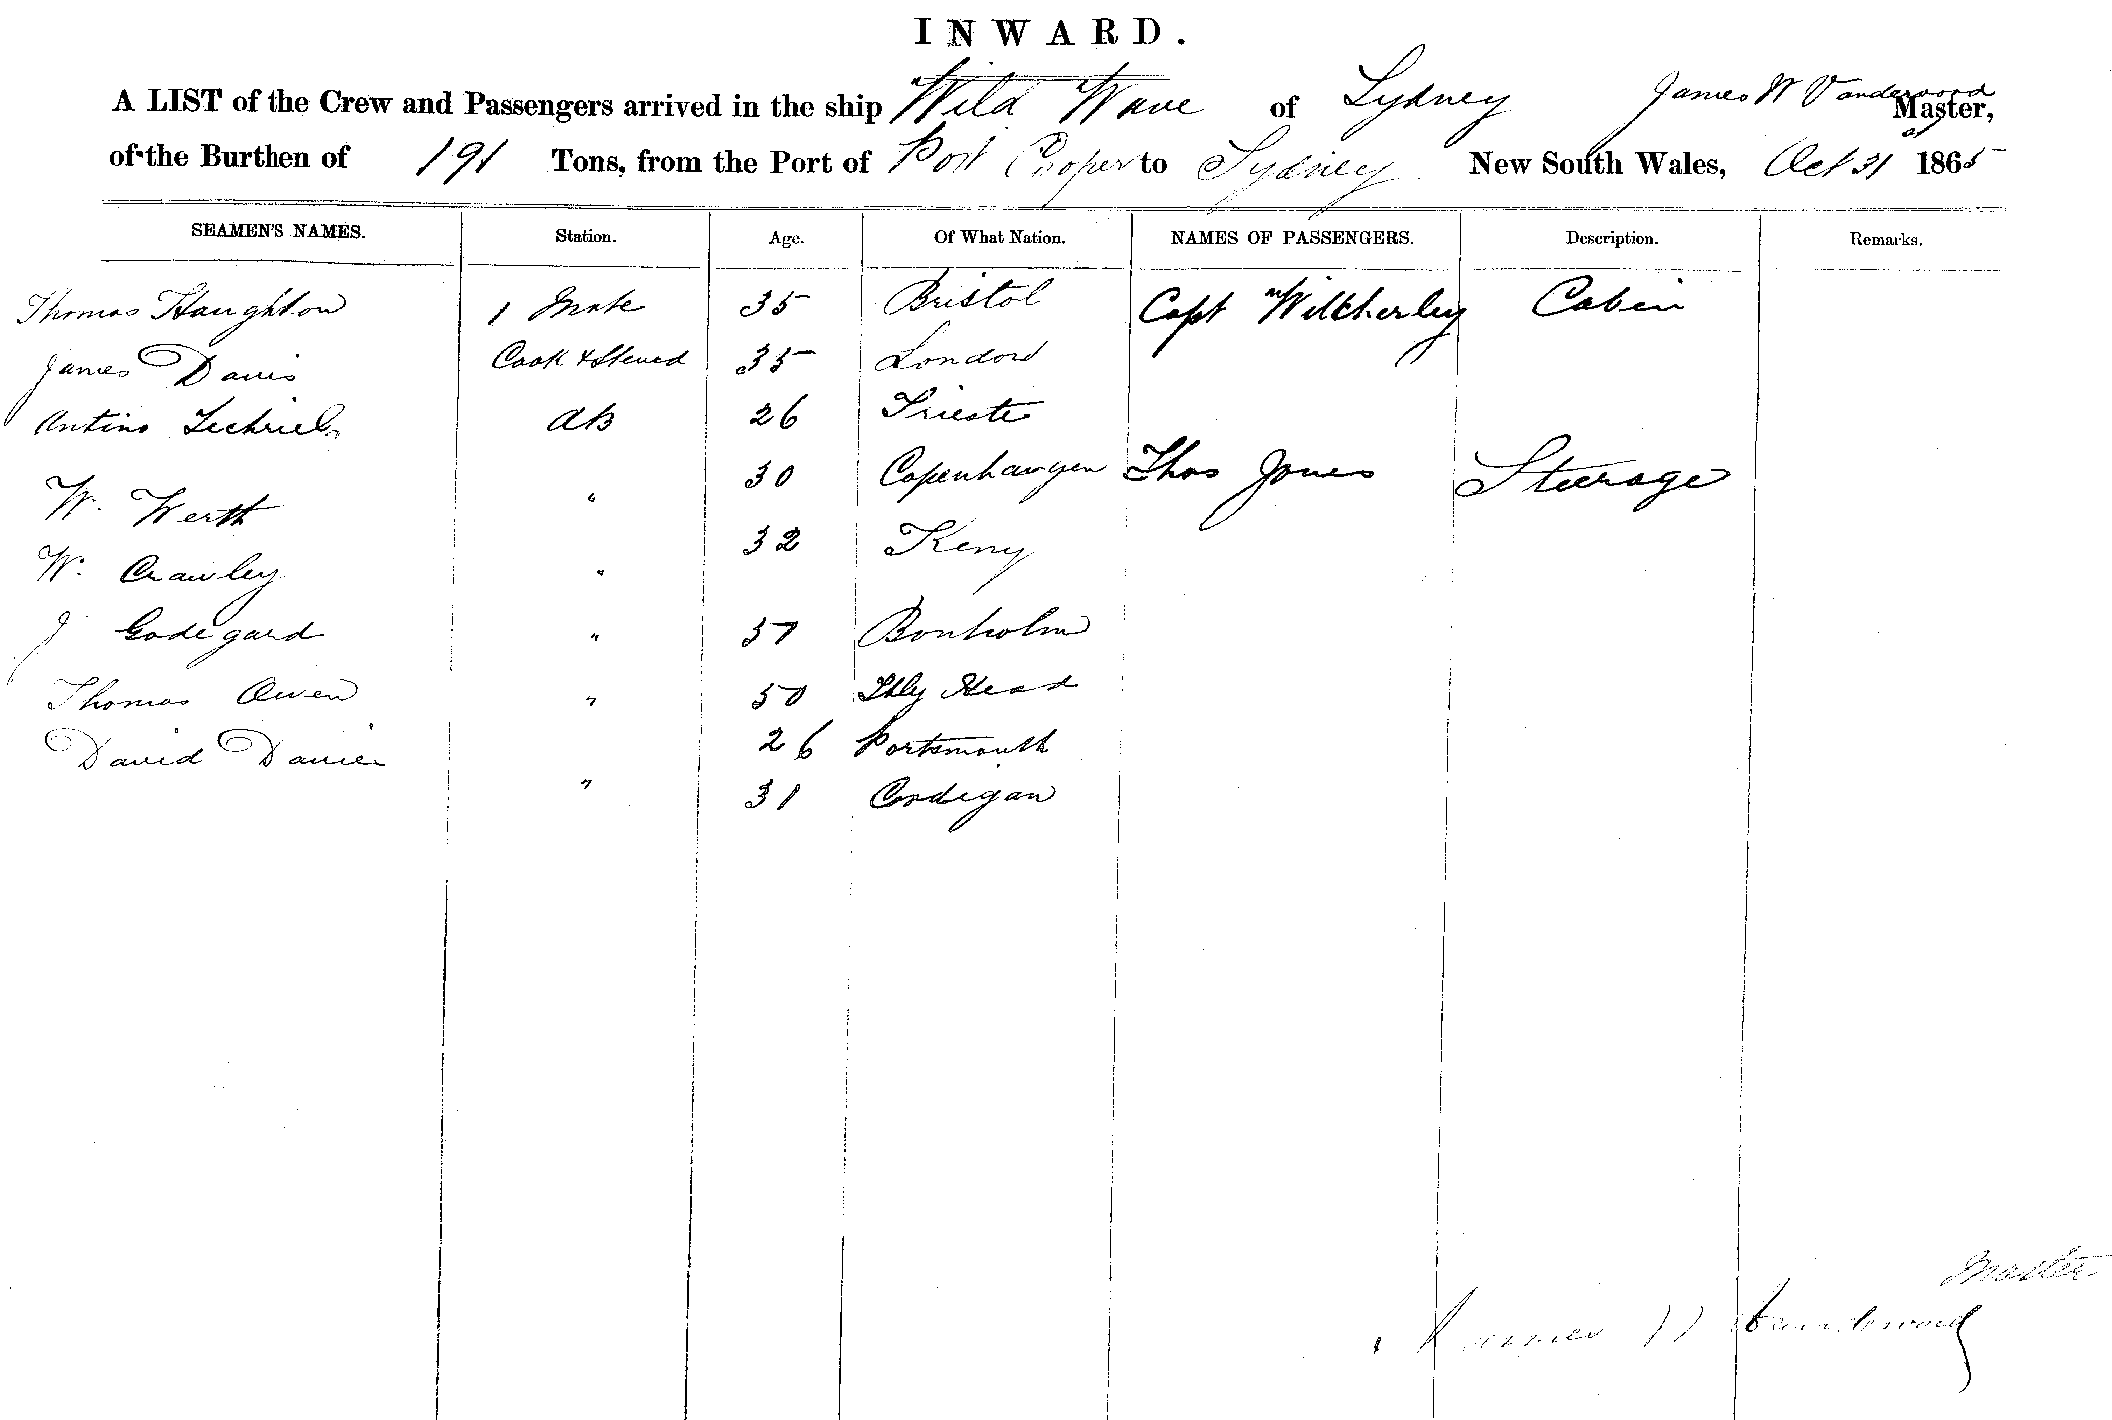 INWARD.
A LIST of the Crew and Passengers arrived in the ship Wild Wave of Sydney James W Vanderwood Master,
of the Burthen of 191 Tons, from the Port of Port Cooper to Sydney New South Wales, Oct 31st 1865
SEAMEN'S NAMES. Station. Age. Of What Nation. NAMES OF PASSENGERS. Description. Remarks.
Thomas Haughton 1 Mate 35 Bristol Capt Witcherley Cabin
James Davis Cook & Steued 35 London
Antino AB 26 Trieste
W. Werth " 30 Copenhaugen Thos Jones Steerage
W. Crawley " 32 Kerry
J Godegard " 37 Bonholm
Thomas Owen " 50 Holy Head
David Davies 26 Portsmouth
" 31 Cordigan
Master
James W Vanderwood